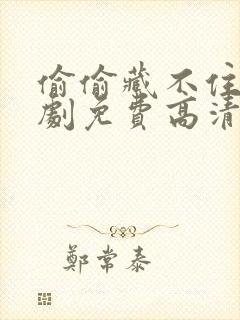 偷偷藏不住
劇免費高清
鄭常泰